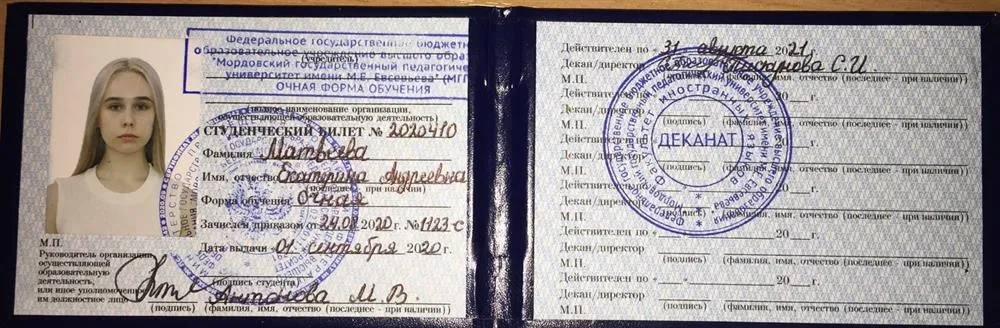 Федеральное государственное бюджетн
образовательное учреждение высшего образо
(учредитель)
"Мордовский государственный педагогиче
университет имени М.Е. Евсевьева" (МГП
ОЧНАЯ ФОРМА ОБУЧЕНИЯ
(полное наименование организации,
осуществляющей образовательную деятельность)
СТУДЕНЧЕСКИЙ БИЛЕТ № 2020410
Фамилия Матвеева
Имя, отчество Екатерина Андреевна
(последнее - при наличии)
Форма обучения Очная
Зачислен приказом от 24.08 2020 г. № 1123-с
Дата выдачи «01» сентября 2020 г.
(подпись студента)
М.П.
Руководитель организации,
осуществляющей
образовательную
деятельность,
или иное уполномоченное
им должностное лицо
Антонова М. В.
(подпись) (фамилия, имя, отчество (последнее - при наличии)
Действителен по «31» августа 2021 г.
Декан/директор С.И
М.П. (подпись) (фамилия, имя, отчество (последнее - при наличии)
Действителен по « 20 г.
Декан/директор
М.П. (подпись) (фамилия, имя, отчество (последнее - при наличии)
Действителен по « 20 г.
Декан/директор
М.П. (подпись) (фамилия, имя, отчество (последнее - при наличии)
Действителен по « 20 г.
Декан/директор
М.П. (подпись) (фамилия, имя, отчество (последнее - при наличии)
Действителен по « 20 г.
Декан/директор
М.П. (подпись) (фамилия, имя, отчество (последнее - при наличии)
Действителен по « 20 г.
Декан/директор
М.П. (подпись) (фамилия, имя, отчество (последнее - при наличии)
ДЕКАНАТ
иностранных языков